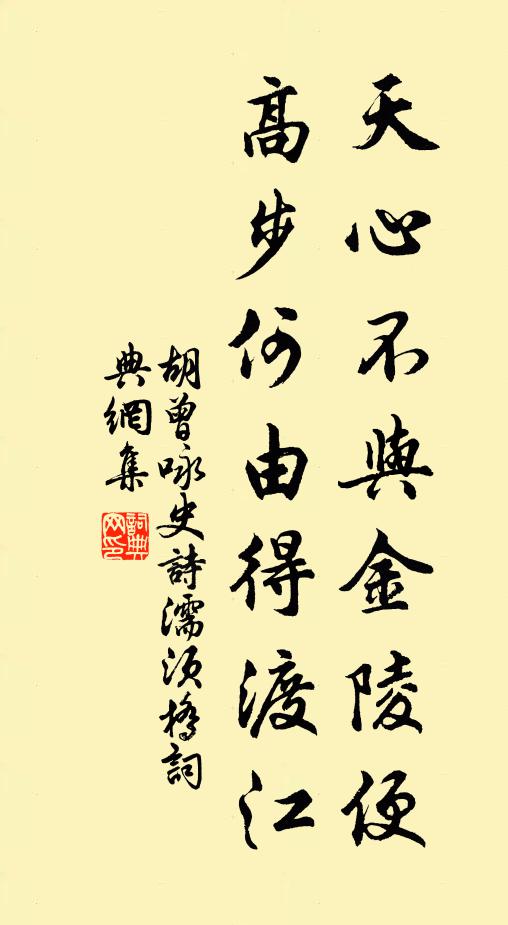 天心不與金陵便
高步何由得渡江
胡曾咏史詩濡須橋詞
典網集
詞典網印